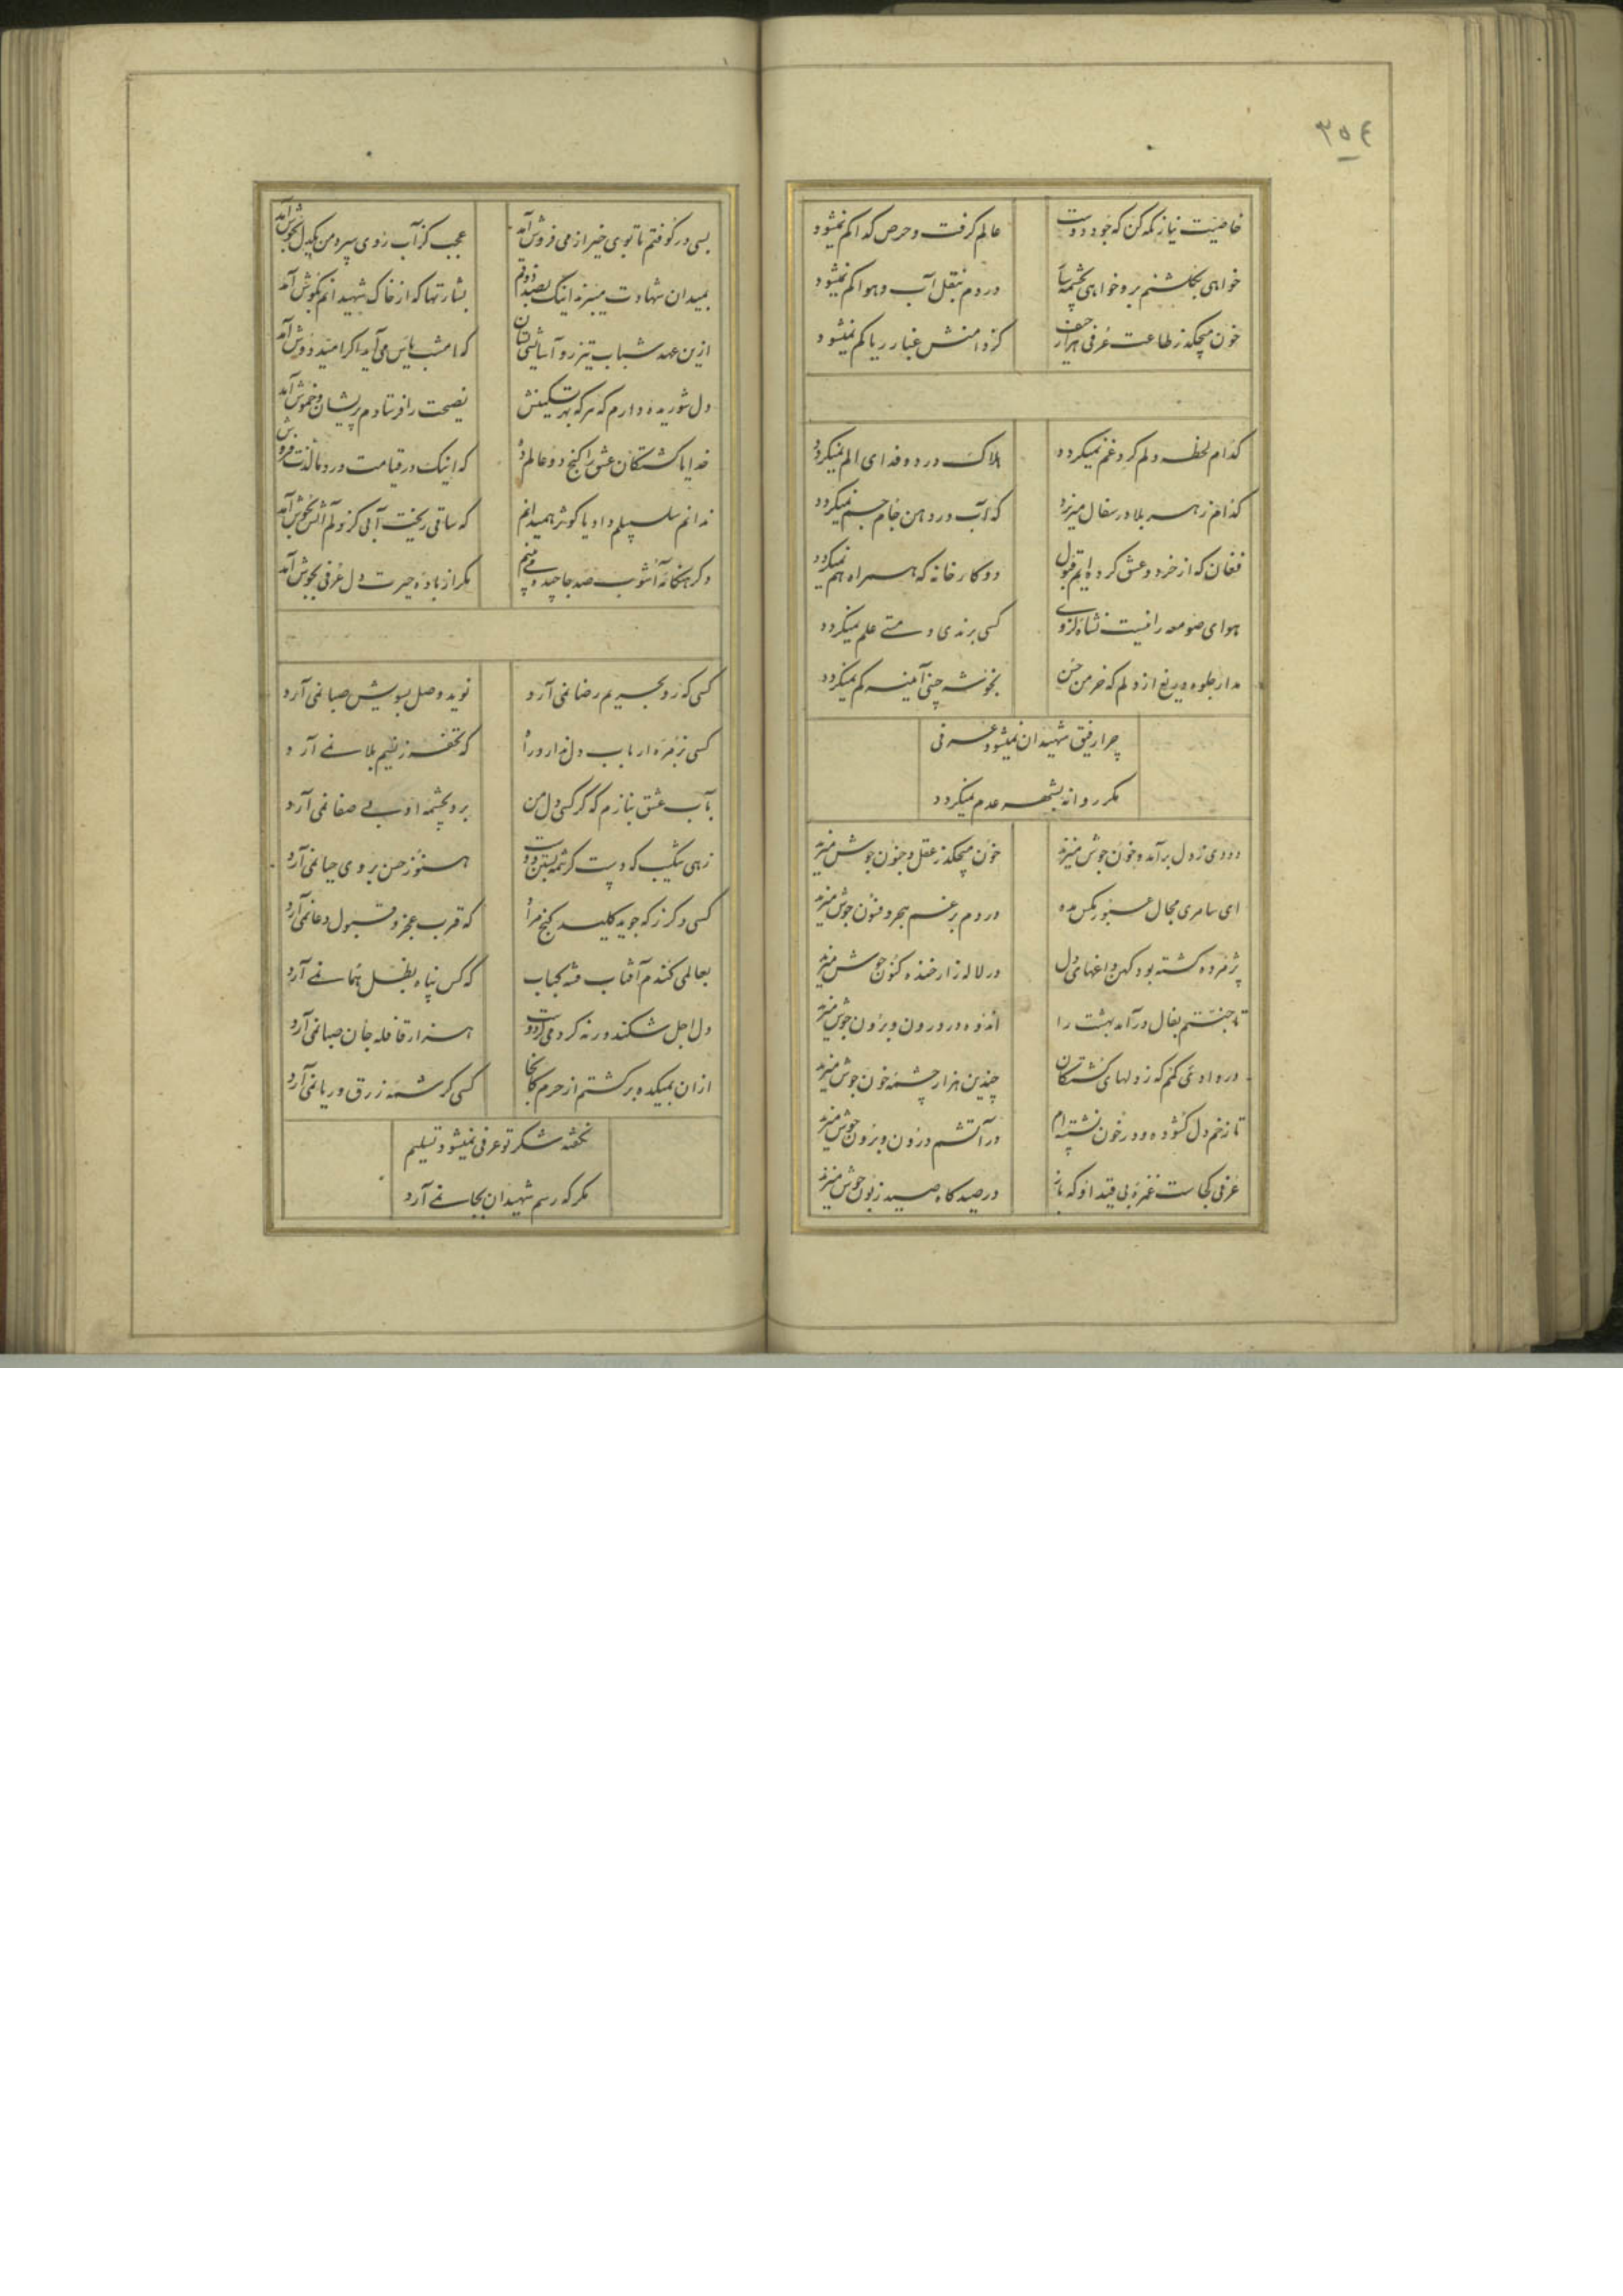 ۳۵۴
خاصیت نیاز نکه کن که جود دوست عالم کرفت و حرص کدا کم نمیشود
خواهی بکلشنم بر و خواهی بچشمه سار دردم بنقل آب و هوا کم نمیشود
خون میچکد ز طاعت عرفی هزار حیف کز دامنش غبار ریا کم نمیشود
کدام لحظه دلم کرد غم نمیکردد هلاک درد و فدای الم نمیکردد
کدام زهر بلا در سفال میریزد که آب در دهن جام جم نمیکردد
فغان که از خرد و عشق کرده ایم قبول دو کارخانه که همراه هم نمیکردد
هوای صومعه را نیست نشاه کز وی کسی برندی و مستی علم نمیکردد
مدار جلوه دریغ از دلم که خرمن حسن بخوشه چینی آیینه کم نمیکردد
چرا رفیق شهیدان نمیشود عرفی
مکر روانه بشهر عدم نمیکردد
دودی ز دل برآمد و خون جوش میزند خون میچکد ز عقل و جنون جوش میزند
ای سامری مجال فسون بکس مده دردم برغم سحر و فنون جوش میزند
پژمرده کشته بود کهن داغهای دل در لاله زار خنده کنون جوش میزند
تا جستم بفال درآمد بهشت را اندوه در درون و برون جوش میزند
در وادیی کمم که ز دلهای کشتکان چندین هزار چشمه خون جوش میزند
تا زخم دل کشوده و در خون نشسته ام در آتشم درون و برون جوش میزند
عرفی کجاست غمزه بی قید او که باز در صیدکاه صید زبون جوش میزند
بسی در کوفتم تا بوی خیر از می فروش آمد عجب کز آب روی پیر و من یکدل بجوش آمد
بمیدان شهادت میبرند اینک بصد ذوقم بشارتها که از خاک شهیدانم بکوش آمد
ازین عهد شباب تیز رو آسایشی بستان که امشب یاس می آید اکر امید دوش آمد
دل شوریده دارم که هر که بهر تسکینش نصیحت را فرستادم پریشان و خموش آمد
خدایا کشتکان عشق را کنج دو عالم ده که اینک در قیامت درد ما لذت فروش آمد
ندانم سلسبیلم داد یا کوثر همیدانم که ساقی ریخت آبی کز دلم آتش بجوش آمد
دکر هنکامه آشوب صد جا چیده می بینم مکر از باده حیرت دل عرفی بجوش آمد
کسی که رو بحریم رضا نمی آرد نوید وصل بسویش صبا نمی آرد
کسی بزمره ارباب دل مدار ورا که تحفه ز نسیم بلا نمی آرد
بآب عشق بنازم که کر کسی دل من برد بچشمه او بی صفا نمی آرد
زهی شکیب که دست کرشمه بستن دوست هنوز حسن بروی حیا نمی آرد
کسی دکر ز که جوید کلید کنج مراد که قرب عجز و قبول دعا نمی آرد
بعالمی کندم آفتاب فتنه کباب که کس پناه بظل هما نمی آرد
دل اجل شکند ورنه کرد می ره دوست هزار قافله جان صبا نمی آرد
از ان بمیکده برکشتم از حرم کانجا کسی کرشمه زرق و ریا نمی آرد
نکفته شکر تو عرفی نمیشود تسلیم
مکر که رسم شهیدان بجا نمی آرد